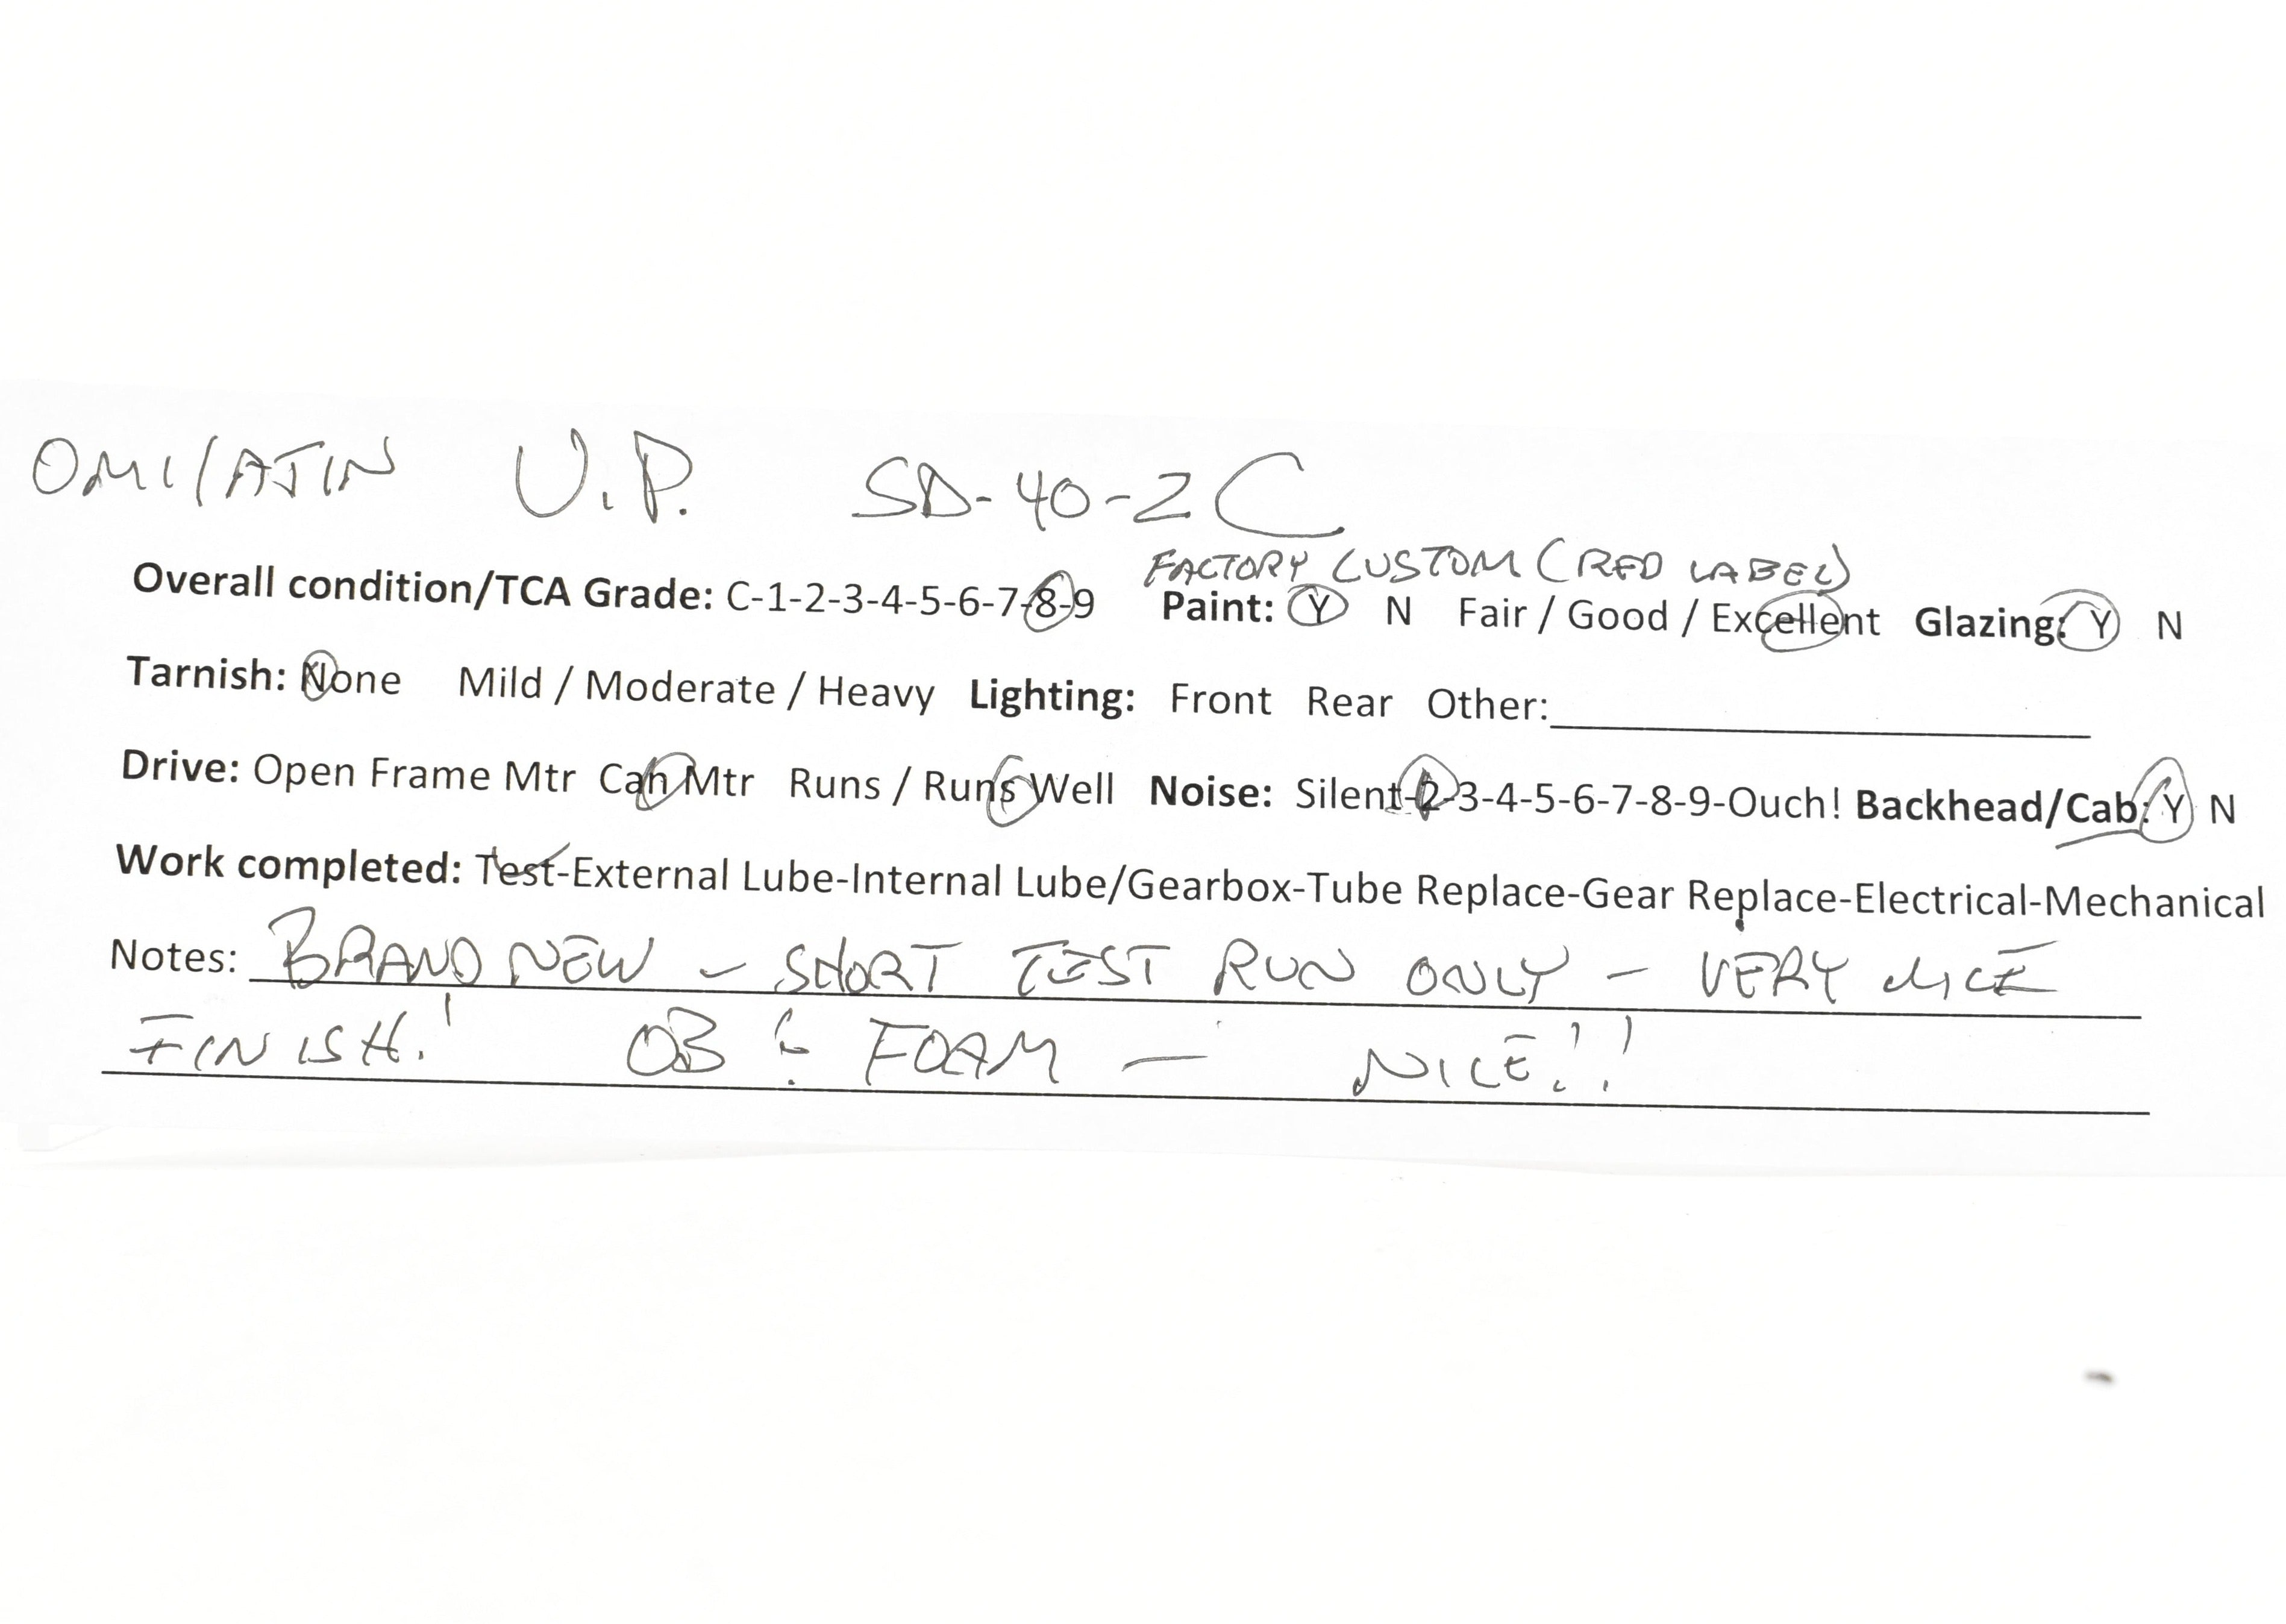 OMI/AJIN U.P. SD-40-2C
FACTORY CUSTOM (RED LABEL)
Overall condition/TCA Grade: C-1-2-3-4-5-6-7-8-9 Paint: Y N Fair / Good / Excellent Glazing: Y N
Tarnish: None Mild / Moderate / Heavy Lighting: Front Rear Other:
Drive: Open Frame Mtr Can Mtr Runs / Runs Well Noise: Silent-2-3-4-5-6-7-8-9-Ouch! Backhead/Cab: Y N
Work completed: Test-External Lube-Internal Lube/Gearbox-Tube Replace-Gear Replace-Electrical-Mechanical
Notes: BRAND NEW - SHORT TEST RUN ONLY - VERY NICE
FINISH! OB & FOAM - NICE!!